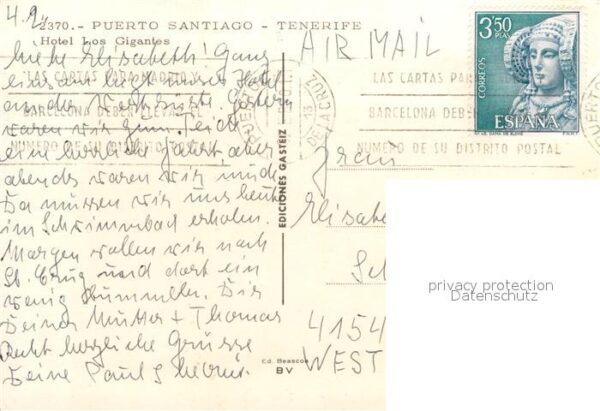 4.9.
2370.- PUERTO SANTIAGO - TENERIFE
Hotel Los Gigantes
AIR MAIL
Liebe Elisabeth! Ganz
einsam liegt unser Hotel
an der Westküste. Gestern
waren wir zum Teide
eine herrliche Fahrt, aber
abends waren wir müde
Da müssen wir uns heute
im Schwimmbad erholen.
Morgen wollen wir nach
St. Cruz und dort ein
wenig bummeln. Dir
Deiner Mutter + Thomas
recht herzliche Grüsse
Deine Paul
LAS CARTAS PARA MADRID Y
BARCELONA DEBEN LLEVAR EL
NUMERO DE SU DISTRITO POSTAL
PUERTO
DE LA CRUZ
LAS CARTAS PAR
BARCELONA DEBE
NUMERO DE SU DISTRITO POSTAL
PUERTO
3'50
PTAS
CORREOS
ESPAÑA
EDICIONES GASTEIZ
Frau
Elisabe
Sch
4154
WEST
Ed. Beascoa
BV
privacy protection
Datenschutz